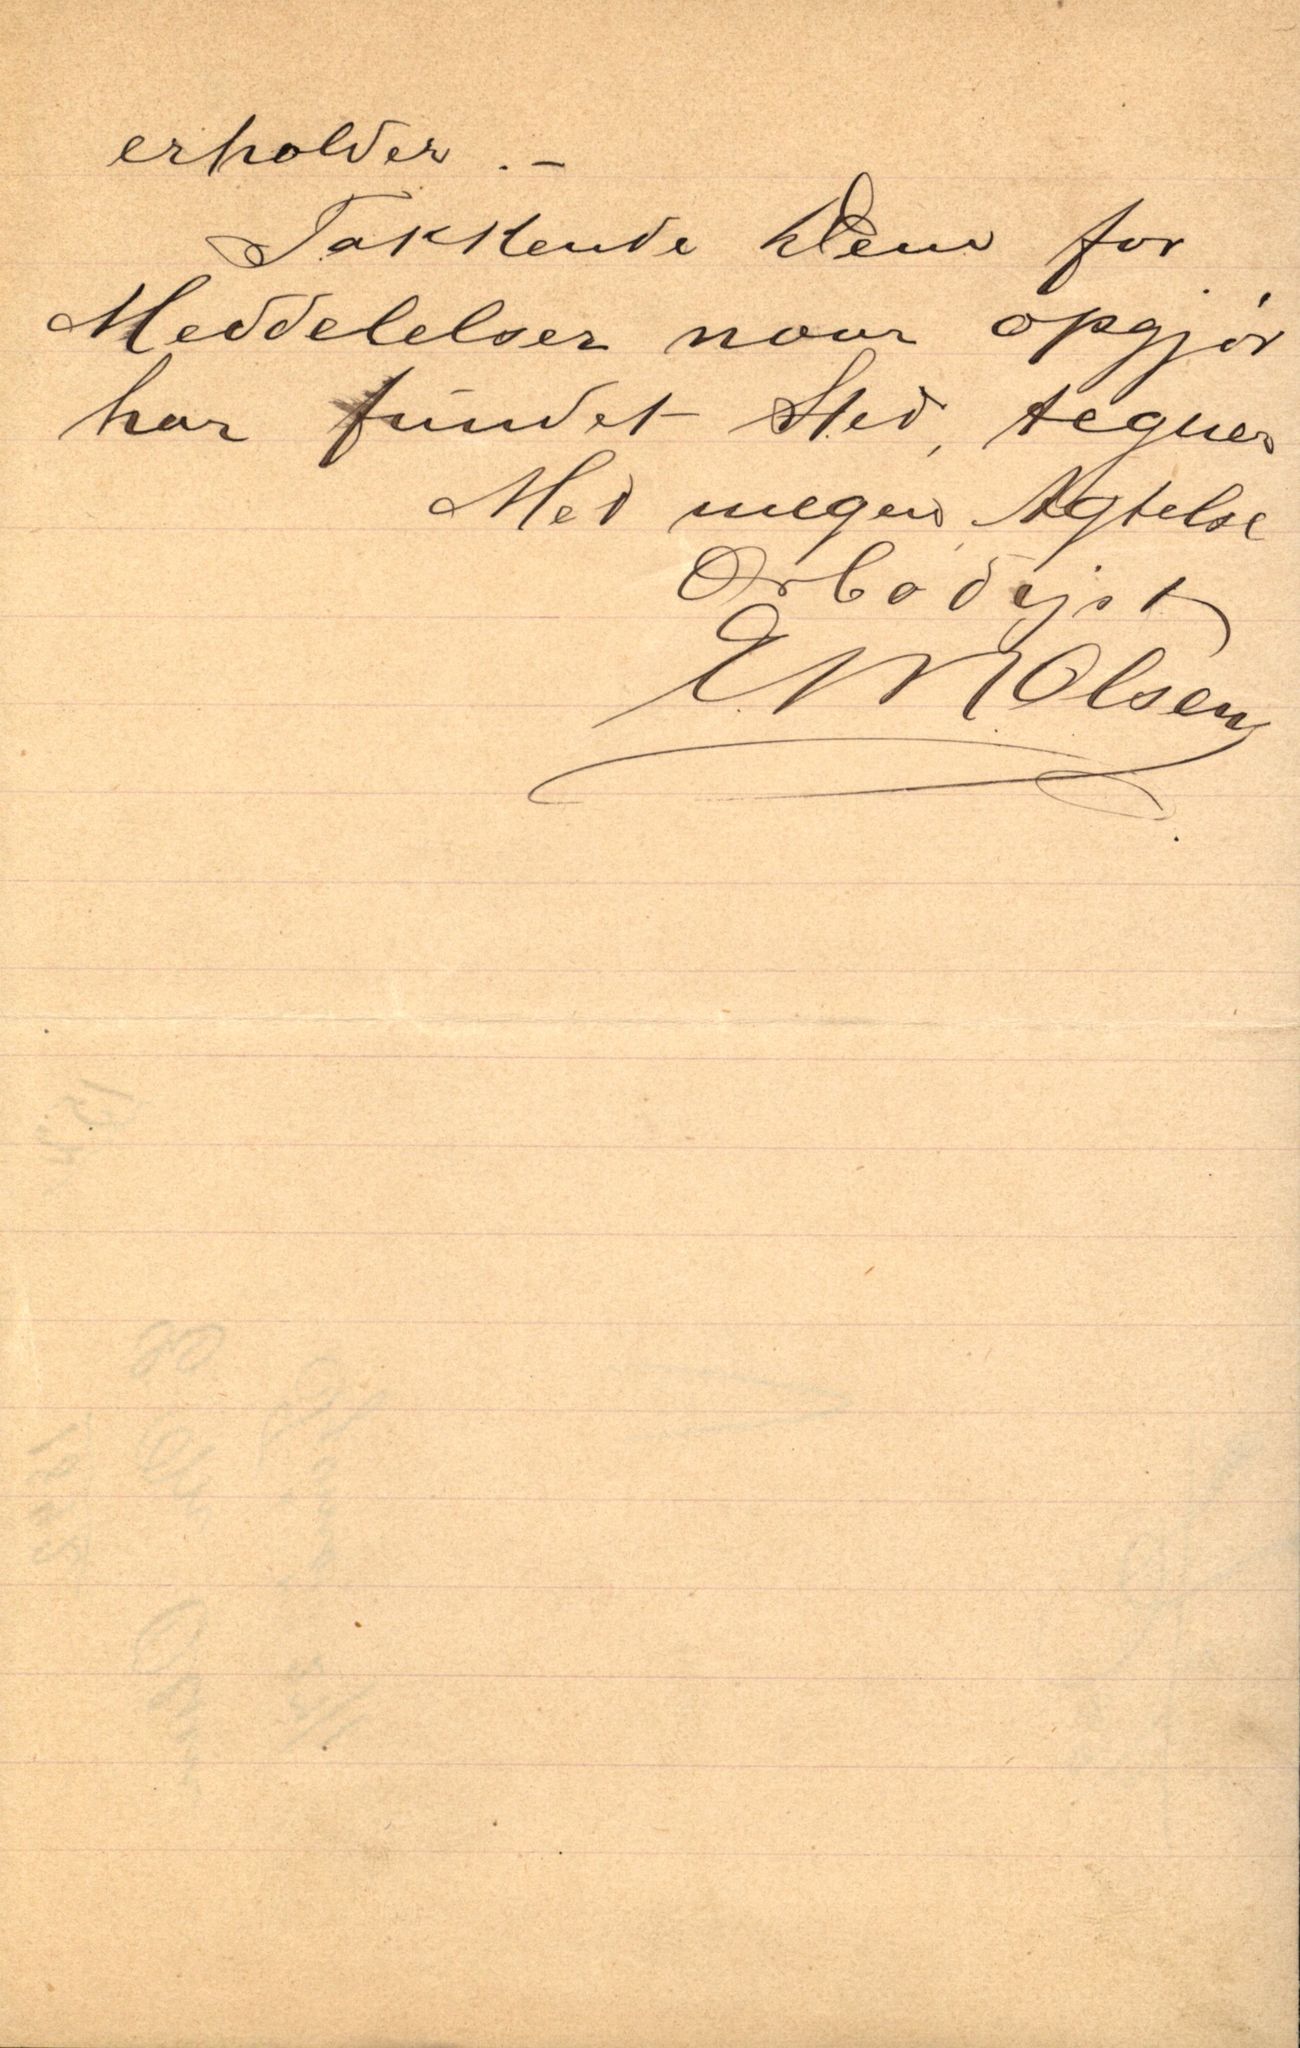 erholder. –
Takkende Dem for
Meddelelser naar opgjør
har fundet Sted, tegner
Med megen Agtelse
Ærbødigst
E. M. Olsen